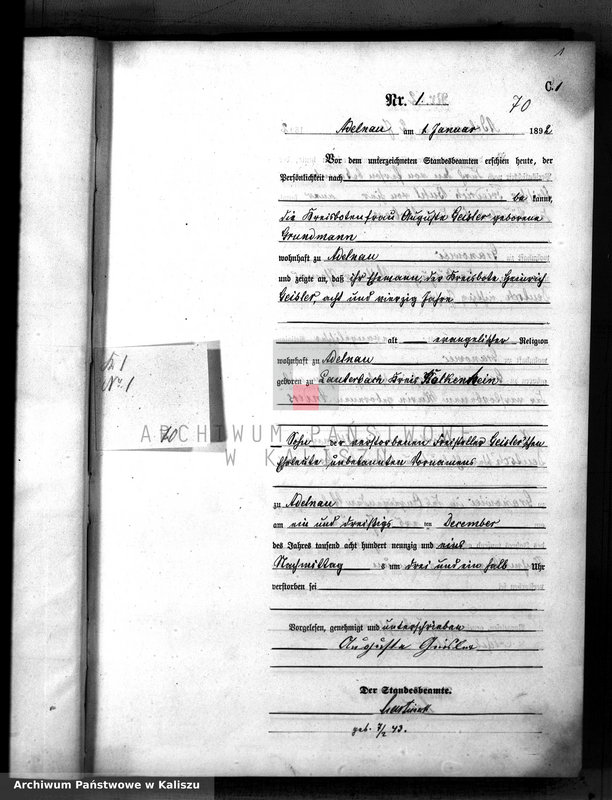 1
C. 1
Nr. 1.
70
Adelnau am 1. Januar 1892
Vor dem unterzeichneten Standesbeamten erschien heute, der
Persönlichkeit nach
be kannt,
die Kreisbotenfrau Auguste Geisler geborene
Grundmann
wohnhaft zu Adelnau
und zeigte an, daß ihr Ehemann, der Kreisbote Heinrich
Geisler, acht und vierzig Jahre
alt evangelischer Religion
wohnhaft zu Adelnau
geboren zu Lauterbach Kreis Falkenstein
Sohn der verstorbenen Freisteller Geisler'schen
Eheleute, unbekannten Vornamens
zu Adelnau
am ein und dreißigs ten December
des Jahres tausend acht hundert neunzig und eins
Nachmittag s um drei und ein halb Uhr
verstorben sei
Vorgelesen, genehmigt und unterschrieben
Auguste Geisler
Der Standesbeamte.
geb. 7/2 43.
№ 1
70
ARCHIWUM PAŃSTWOWE
W KALISZU
Archiwum Państwowe w Kaliszu